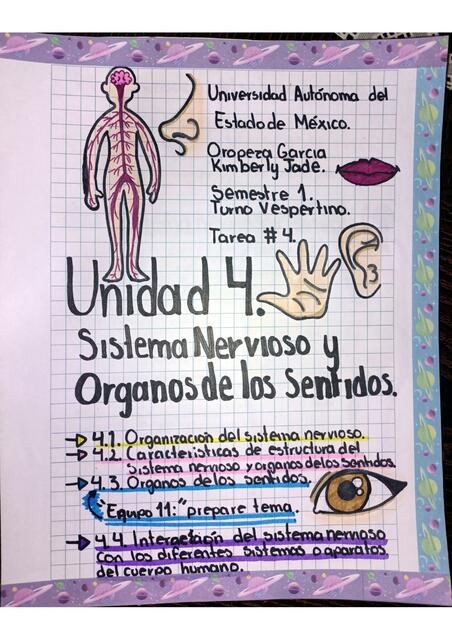 Universidad Autónoma del
Estado de México.
Oropeza Garcia
Kimberly Jade.
Semestre 1.
Turno Vespertino.
Tarea # 4.
Unidad 4.
Sistema Nervioso y
Organos de los Sentidos.
4.1. Organización del sistema nervioso.
4.2. Características de estructura del
sistema nervioso y organos de los sentidos.
4.3. Organos de los sentidos.
"Equipo 11:" prepare tema.
4.4. Interacción del sistema nervioso
con los diferentes sistemas o aparatos
del cuerpo humano.